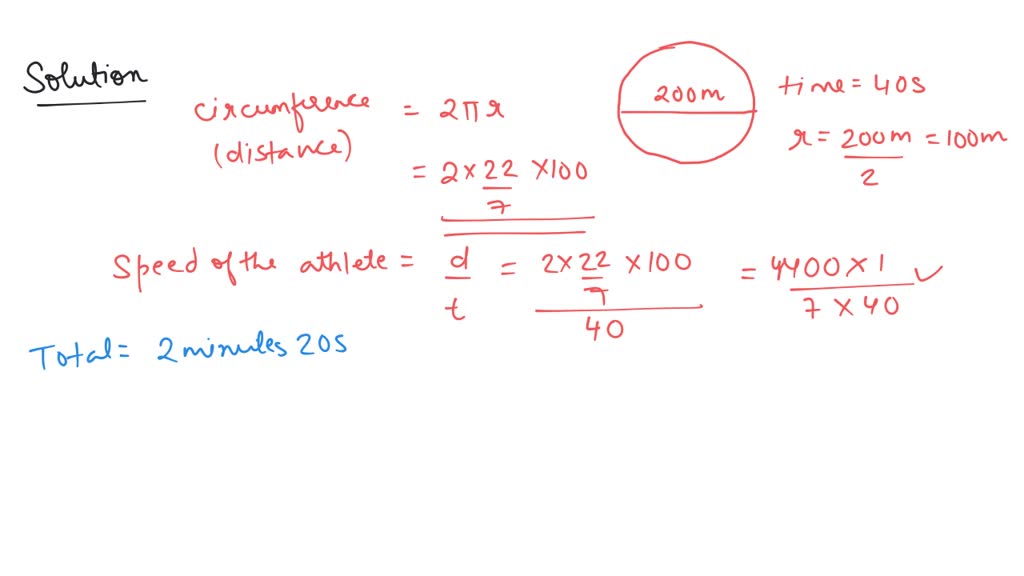 Solution
circumference = 2πr
(distance)
200m
time = 40s
r = 200m/2 = 100m
= 2 × 22/7 × 100
Speed of the athlete = d/t = 2 × 22/7 × 100 / 40 = 4400 × 1 / 7 × 40 ✓
Total = 2 minutes 20s